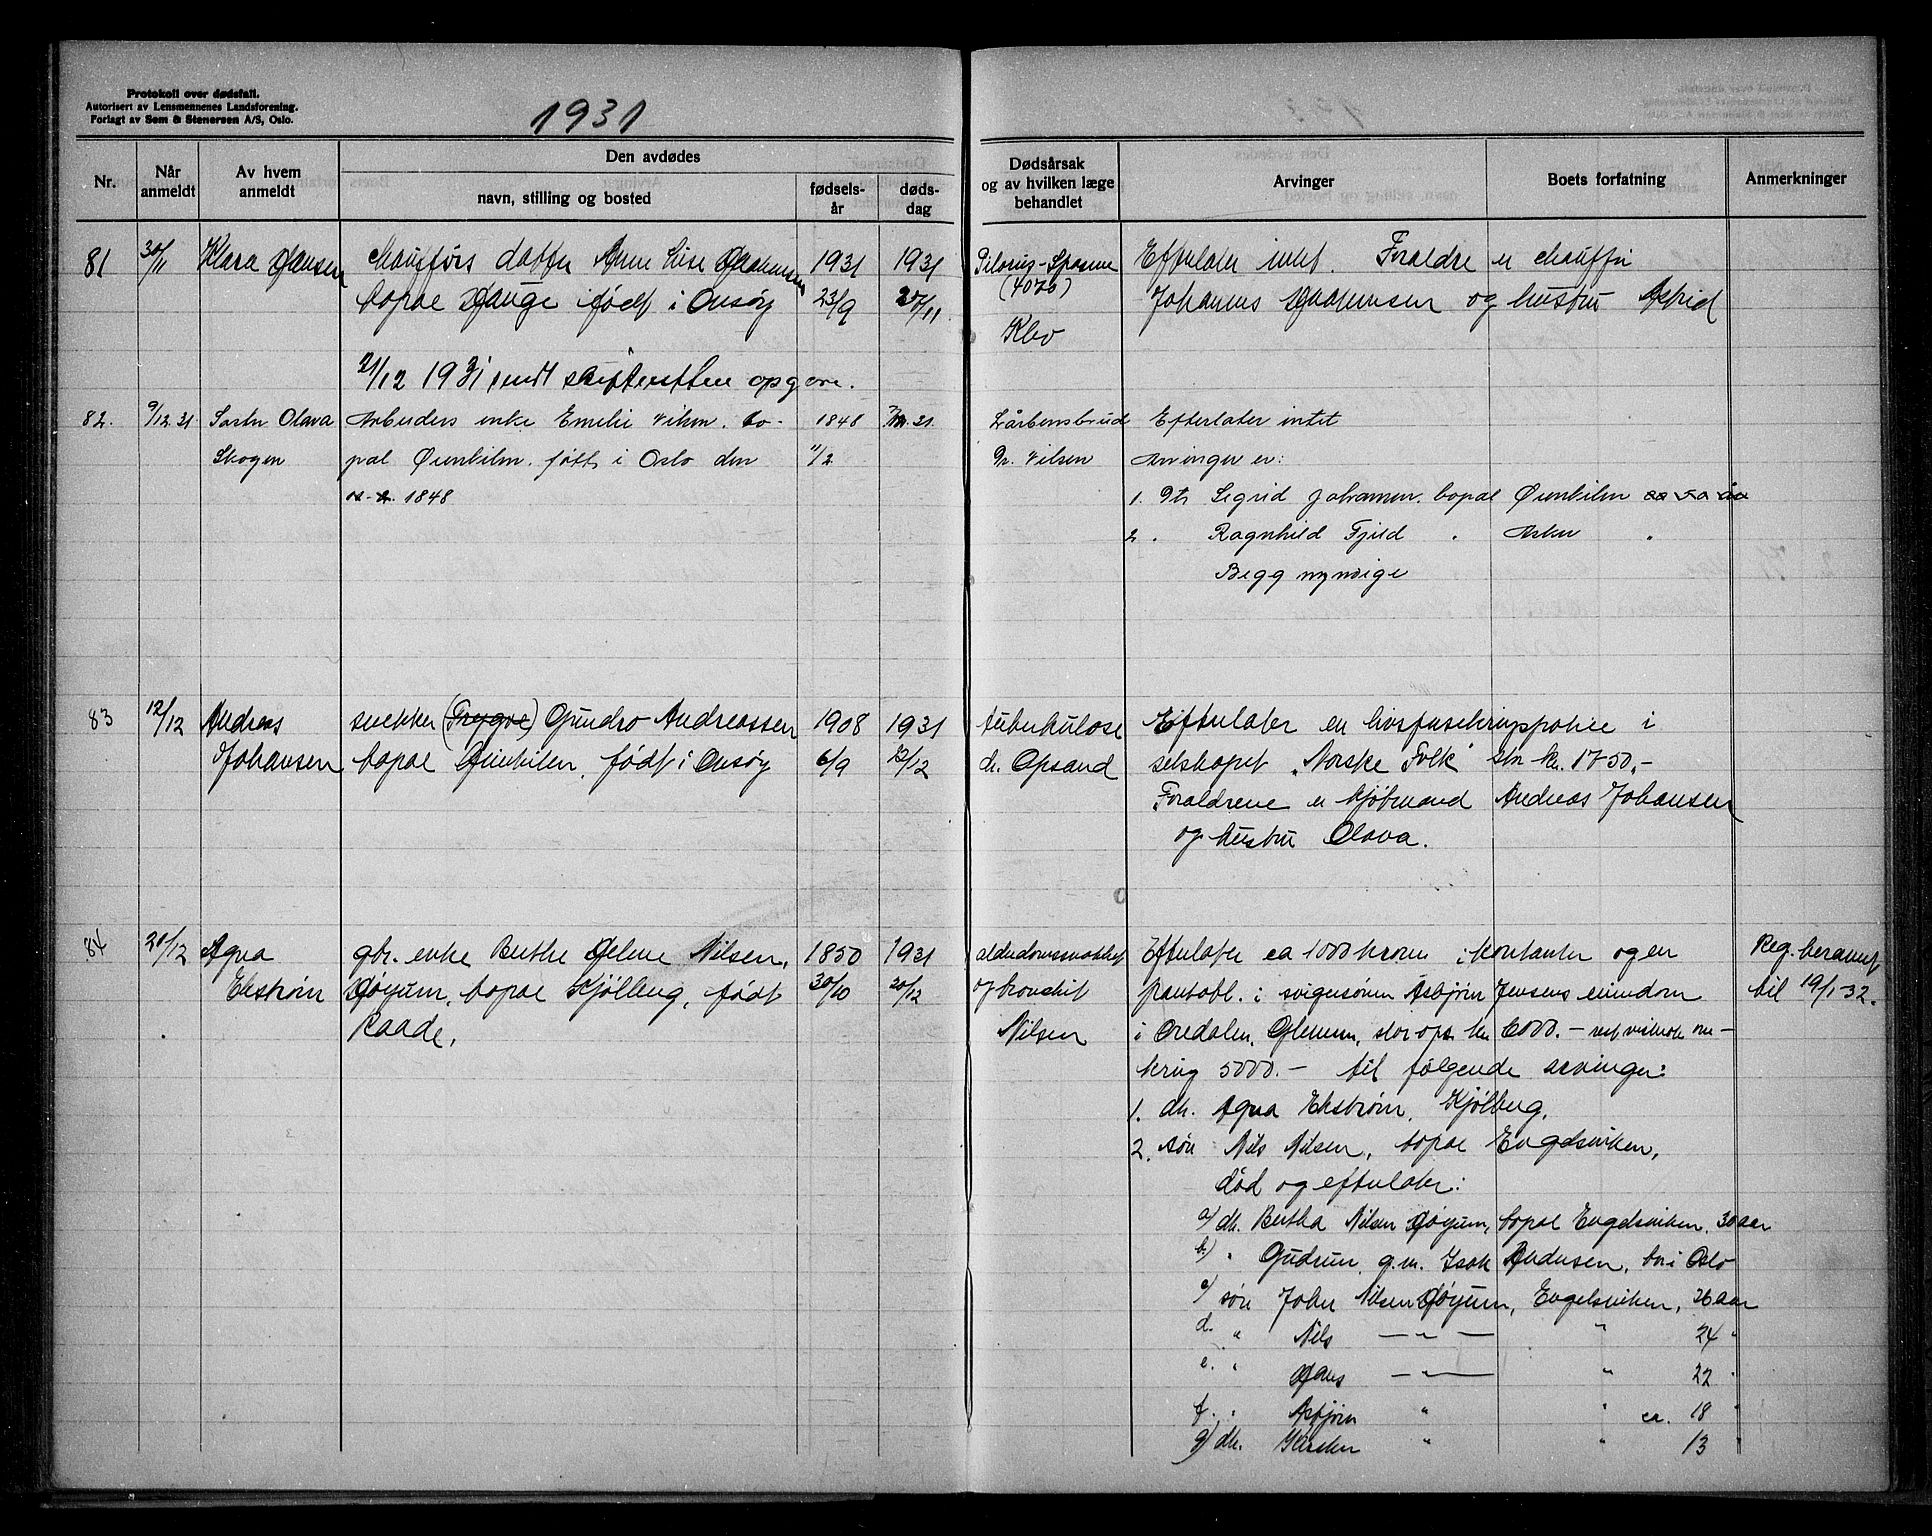 Protokoll over dødsfall.
Autorisert av Lensmennenes Landsforening.
Forlagt av Sem & Stenersen A/S, Oslo.
1931
Nr.
Når anmeldt
Av hvem anmeldt
Den avdødes
navn, stilling og bosted
fødsels-år
døds-dag
Dødsårsak og av hvilken læge behandlet
Arvinger
Boets forfatning
Anmerkninger
81 30/11 Klara Hansen
Chaufførs datter Anne Lise
bopæl Hauge født i Onsøy
1931 23/9
1931 27/11
Pilorus-Spasme
Klev
Efterlater intet. Foræld­re er chauffør
Johannes og hustru Astrid
21/12 1931 sendt skifteretten opgave.
82. 9/12 31 Søster Olava Skogen
Arbeiders enke Emelie Nilsen. bo-
pæl Ørenkilen. født i Oslo den
1848
1848 11/2
31
Lårbensbrud
Dr. Nilsen
Efterlater intet
Arvinger er:
1. Dtr Sigrid Johansen. bopæl Ørenkilen
2 " Ragnhild Fjeld " Asker "
Begg myndige
83 12/12 Andreas Johansen
snekker (Trygve) Gundro Andreassen
bopæl født i Onsøy
1908 6/9
1931 /12
tuberkulose
dr. Opsand
Efterlater en livsforsikringspolice i
selskapet "Norske Folk" stor kr. 1750,-
Forældrene er kjøbmand Andreas Johansen
og hustru Olava.
84 20/12 Agna Ekstrøm
gbr. enke Berthe Helene Nilsen,
Høyum, bopæl Kjølberg, født
Raade.
1850 30/10
1931 20/12
alderdomssvakhet
og bronchit
Nilsen
Efterlater ca 1000 kroner i kontanter og en
pantobl. i svigersønnen Asbjørn Jensens eiendom
i Oredalen, Glemmen, stor opr. kr. 6000.-
5000.- til følgende arvinger:
1. dtr. Agna Ekstrøm, Kjølberg.
2. søn Nils Nilsen, bopæl Engelsviken,
død og efterlater:
a) dtr. Bertha Nilsen Høyum, bopæl Engelsviken, 30 aar
b) " Gudrun, g.m. Isak Andersen, bor i Oslo
c) søn Johan Nilsen Høyum, Engelsviken, 26 aar
d. " Nils — " — " 24 "
e. " Hans — " — " 22 "
f. " Asbjørn " " ca. 18 "
g) dtr. Kirsten " " 13 "
Reg. berammet
til 19/1-32.